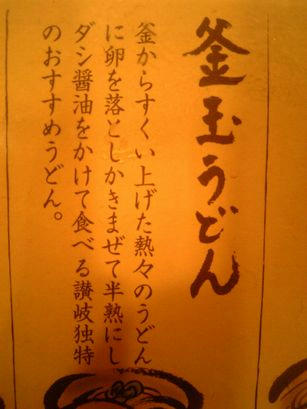 釜玉うどん
釜からすくい上げた熱々のうどん
に卵を落としかきまぜて半熟にし
ダシ醤油をかけて食べる讃岐独特
のおすすめうどん。